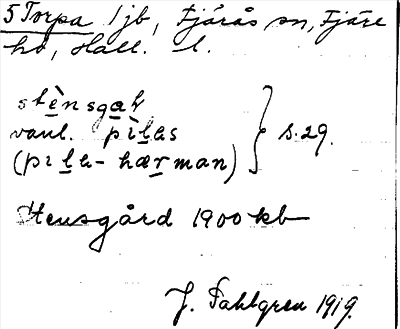 5 Torpa 1 jb, Fjärås sn, Fjäre
hd, Hall. l.
stènsgak
vanl. pìlas
(pɪla-hærman) } s. 29.
Stensgård 1900 kb
J. Sahlgren 1919.